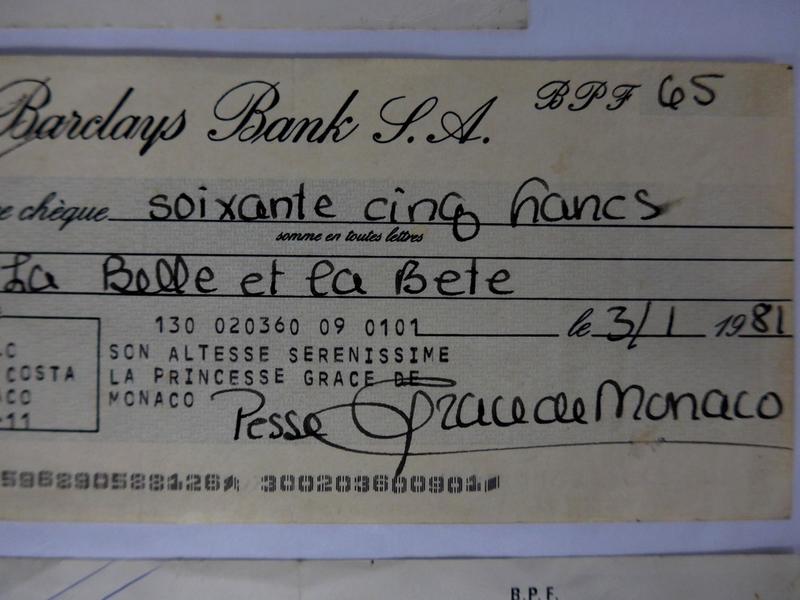 Barclays Bank S.A. BPF 65
e chèque soixante cinq francs
somme en toutes lettres
La Belle et la Bete
130 020360 09 0101 le 3/1 1981
C SON ALTESSE SERENISSIME
COSTA LA PRINCESSE GRACE DE
CO MONACO Pesse Grace de Monaco
-11
B.P.F.